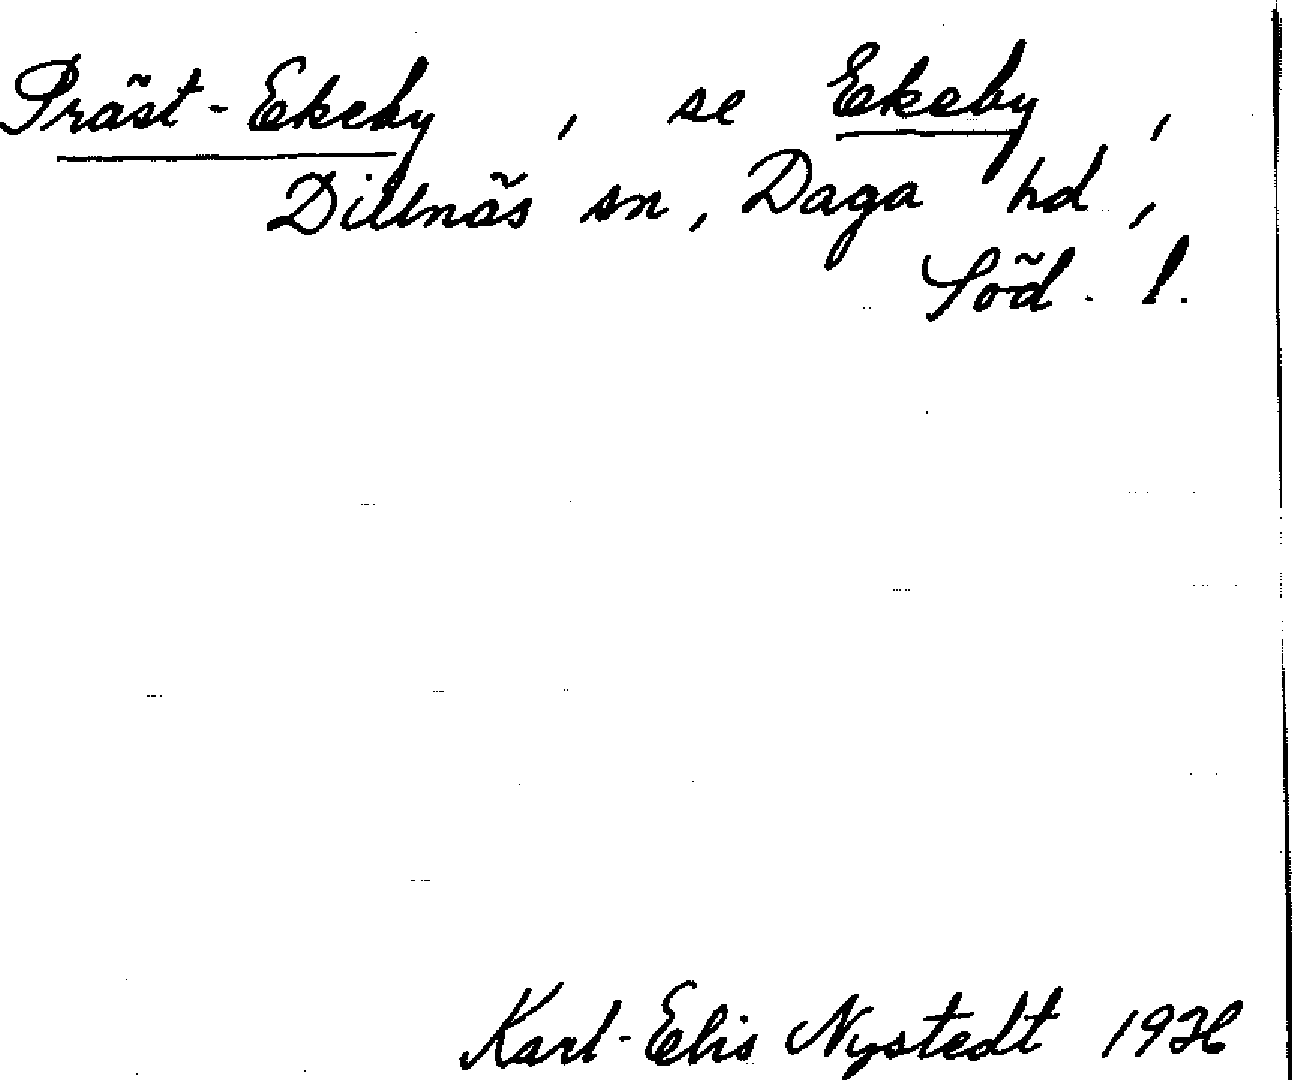 Präst-Ekeby, se Ekeby,
Dillnäs sn, Daga hd,
Söd. l.
Karl-Elis Nystedt 1936